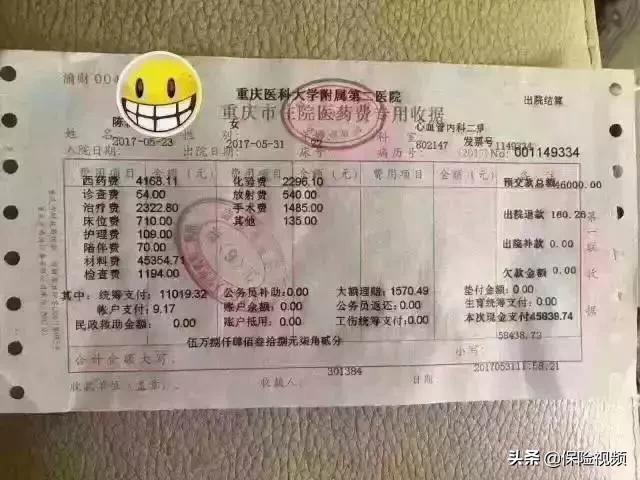 渝财 004
重庆医科大学附属第二医院 出院结算
重庆市住院医药费专用收据
姓名 陈 性别 女 科室 心血管内科二病 发票号 1149334
入院日期: 2017-05-23 出院日期: 2017-05-31 床号 22 病历号: 602147 (2017) No: 001149334
费用项目 金额(元) 费用项目 金额(元) 费用项目 金额(元) 费用项目 金额(元)
西药费 4168.11 化验费 2296.10 预交款总额 46000.00
诊查费 54.00 放射费 540.00
治疗费 2322.80 手术费 1485.00 出院退款 160.26
床位费 710.00 其他 135.00
护理费 109.00 出院补款 0.00
陪伴费 70.00
材料费 45354.71 欠款金额 0.00
检查费 1194.00
其中: 统筹支付: 11019.32 公务员补助: 0.00 大额理赔: 1570.49 垫付金额: 0.00
帐户支付: 9.17 账户余额: 0.00 公务员返还: 0.00 生育统筹支付: 0.00
民政救助金额: 0.00 账户抵用: 0.00 工伤统筹支付: 0.00 本次现金支付: 45839.74
58438.72
伍万捌仟肆佰叁拾捌元柒角贰分
合计金额大写: 小写:
301384 20170531 11:58:21
收款单位(盖章): 收款人: 日期
第一联 收据
头条 @保险视频